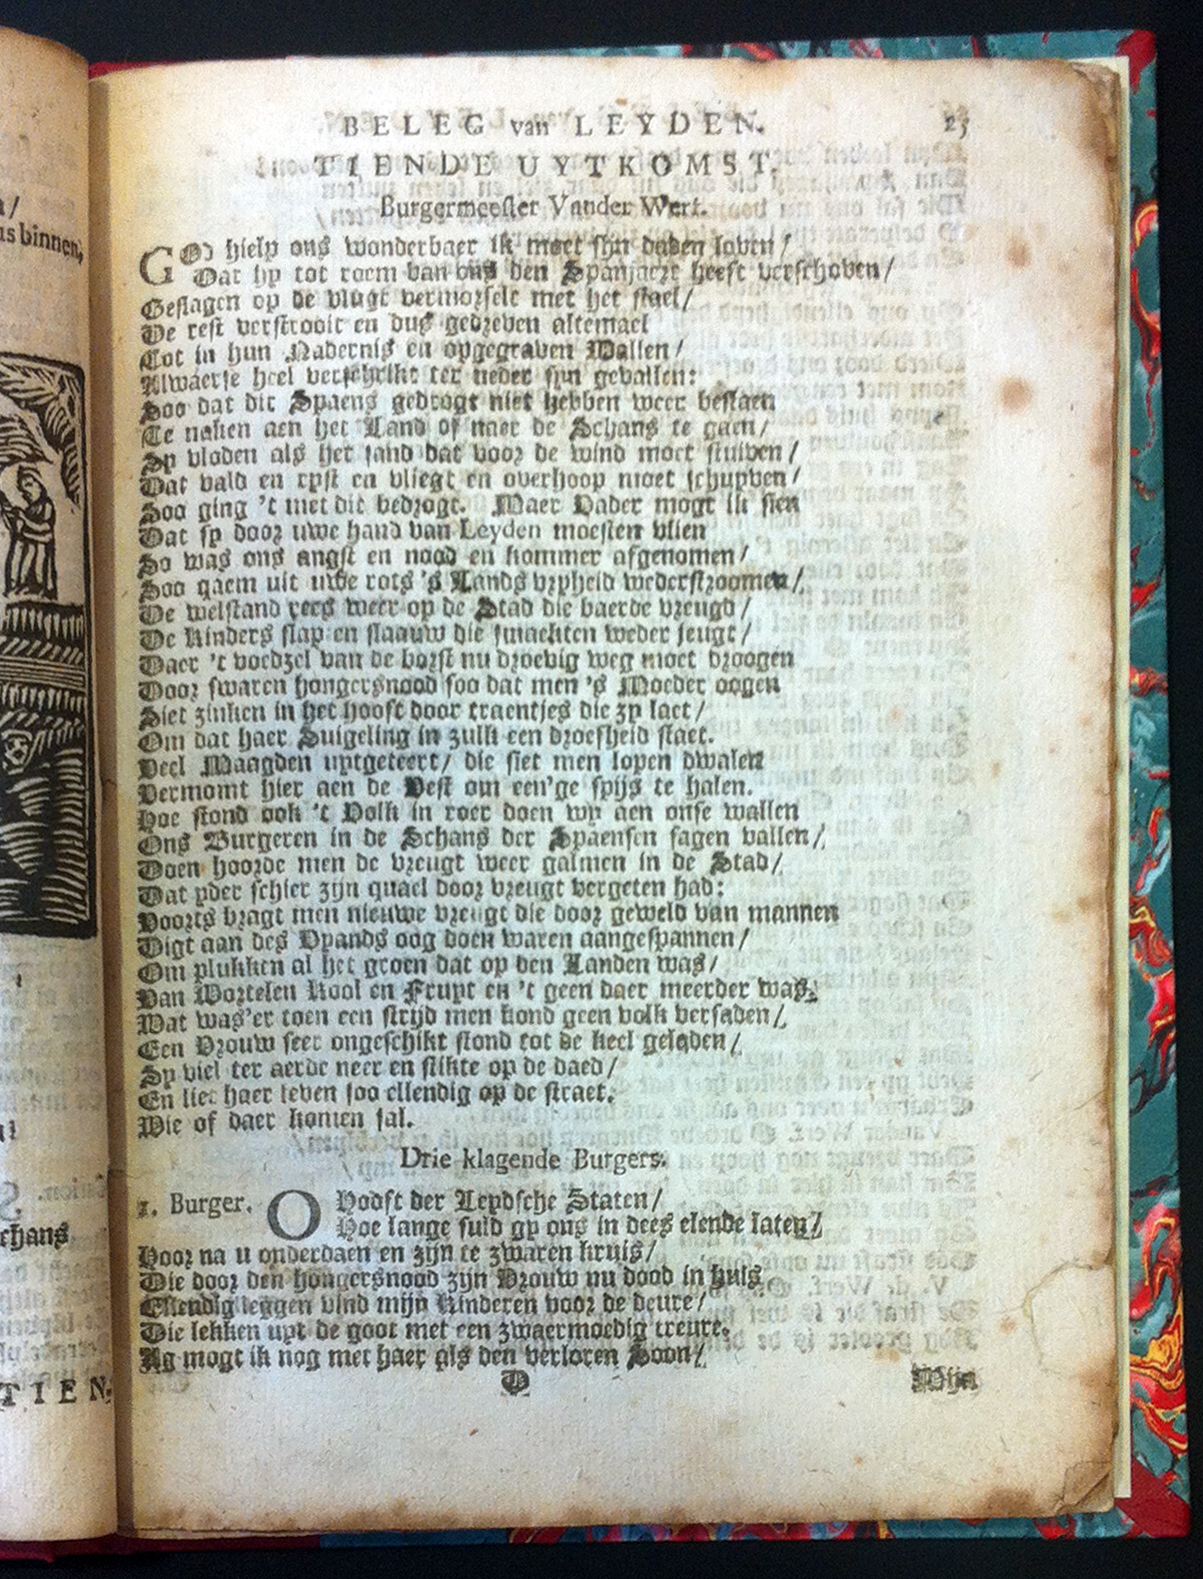 BELEG van LEYDEN. 25
TIENDE UYTKOMST.
Burgermeester Vander Werf.
GOd hielp ons wonderbaer ik moet sijn daden loven/
Dat hy tot roem van ons den Spanjaert heeft verschoven/
Geslagen op de vlugt vermorselt met het stael/
De rest verstrooit en dus gedreven altemael
Tot in hun Nadernis en opgegraven Wallen/
Alwaerse heel verschrikt ter neder sijn gevallen:
Soo dat dit Spaens gedrogt niet hebben weer bestaen
Te naken aen het Land of naer de Schans te gaen/
Sy vloden als het sand dat voor de wind moet stuiven/
Dat vald en ryst en vliegt en overhoop moet schuyven/
Soo ging 't met dit bedrogt. Maer Vader mogt ik sien
Dat sy door uwe hand van Leyden moesten vlien
So was ons angst en nood en kommer afgenomen/
Soo quam uit uwe rots 's Lands vryheid wederstroomen/
De welstand rees weer op de Stad die baerde vreugd/
De kinders slap en slaauw die smachten weder jeugt/
Daer 't voedzel van de borst nu droevig weg moet droogen
Door swaren hongersnood soo dat men 's Moeder oogen
Siet zinken in het hooft door traentjes die zy laet/
Om dat haer Suigeling in zulk een droefheid staet.
Veel Maagden uytgeteert/ die siet men lopen dwalen
Vermomt hier aen de Vest om een'ge spijs te halen.
Hoe stond ook 't Volk in roer doen wy aen onse wallen
Ons Burgeren in de Schans der Spaensen sagen vallen/
Doen hoorde men de vreugt weer galmen in de Stad/
Dat yder schier zijn quael door vreugt vergeten had:
Voorts bragt men nieuwe vreugt die door geweld van mannen
Digt aan des Vyands oog doen waren aangespannen/
Om plukken al het groen dat op den Landen was/
Van Wortelen Kool en Fruyt en 't geen daer meerder was;
Wat was'er toen een strijd men kond geen volk versaden/
Een Vrouw seer ongeschikt stond tot de keel geladen/
Sy viel ter aerde neer en stikte op de daed/
En liet haer leven soo ellendig op de straet.
Wie of daer komen sal.
Drie klagende Burgers.
1. Burger. O Hooft der Leydsche Staten/
Hoe lange suld gy ons in dees elende laten?
Voor na u onderdaen en zijn te zwaren kruis/
Die door den hongersnood zijn Vrouw nu dood in huis
Ellendig leggen vind mijn Kinderen voor de deure/
Die lekken uyt de goot met een zwaermoedig treure.
Ag mogt ik nog met haer als den verloren Soon/
D Mijn
n/
us binnen,
chans
TIEN-